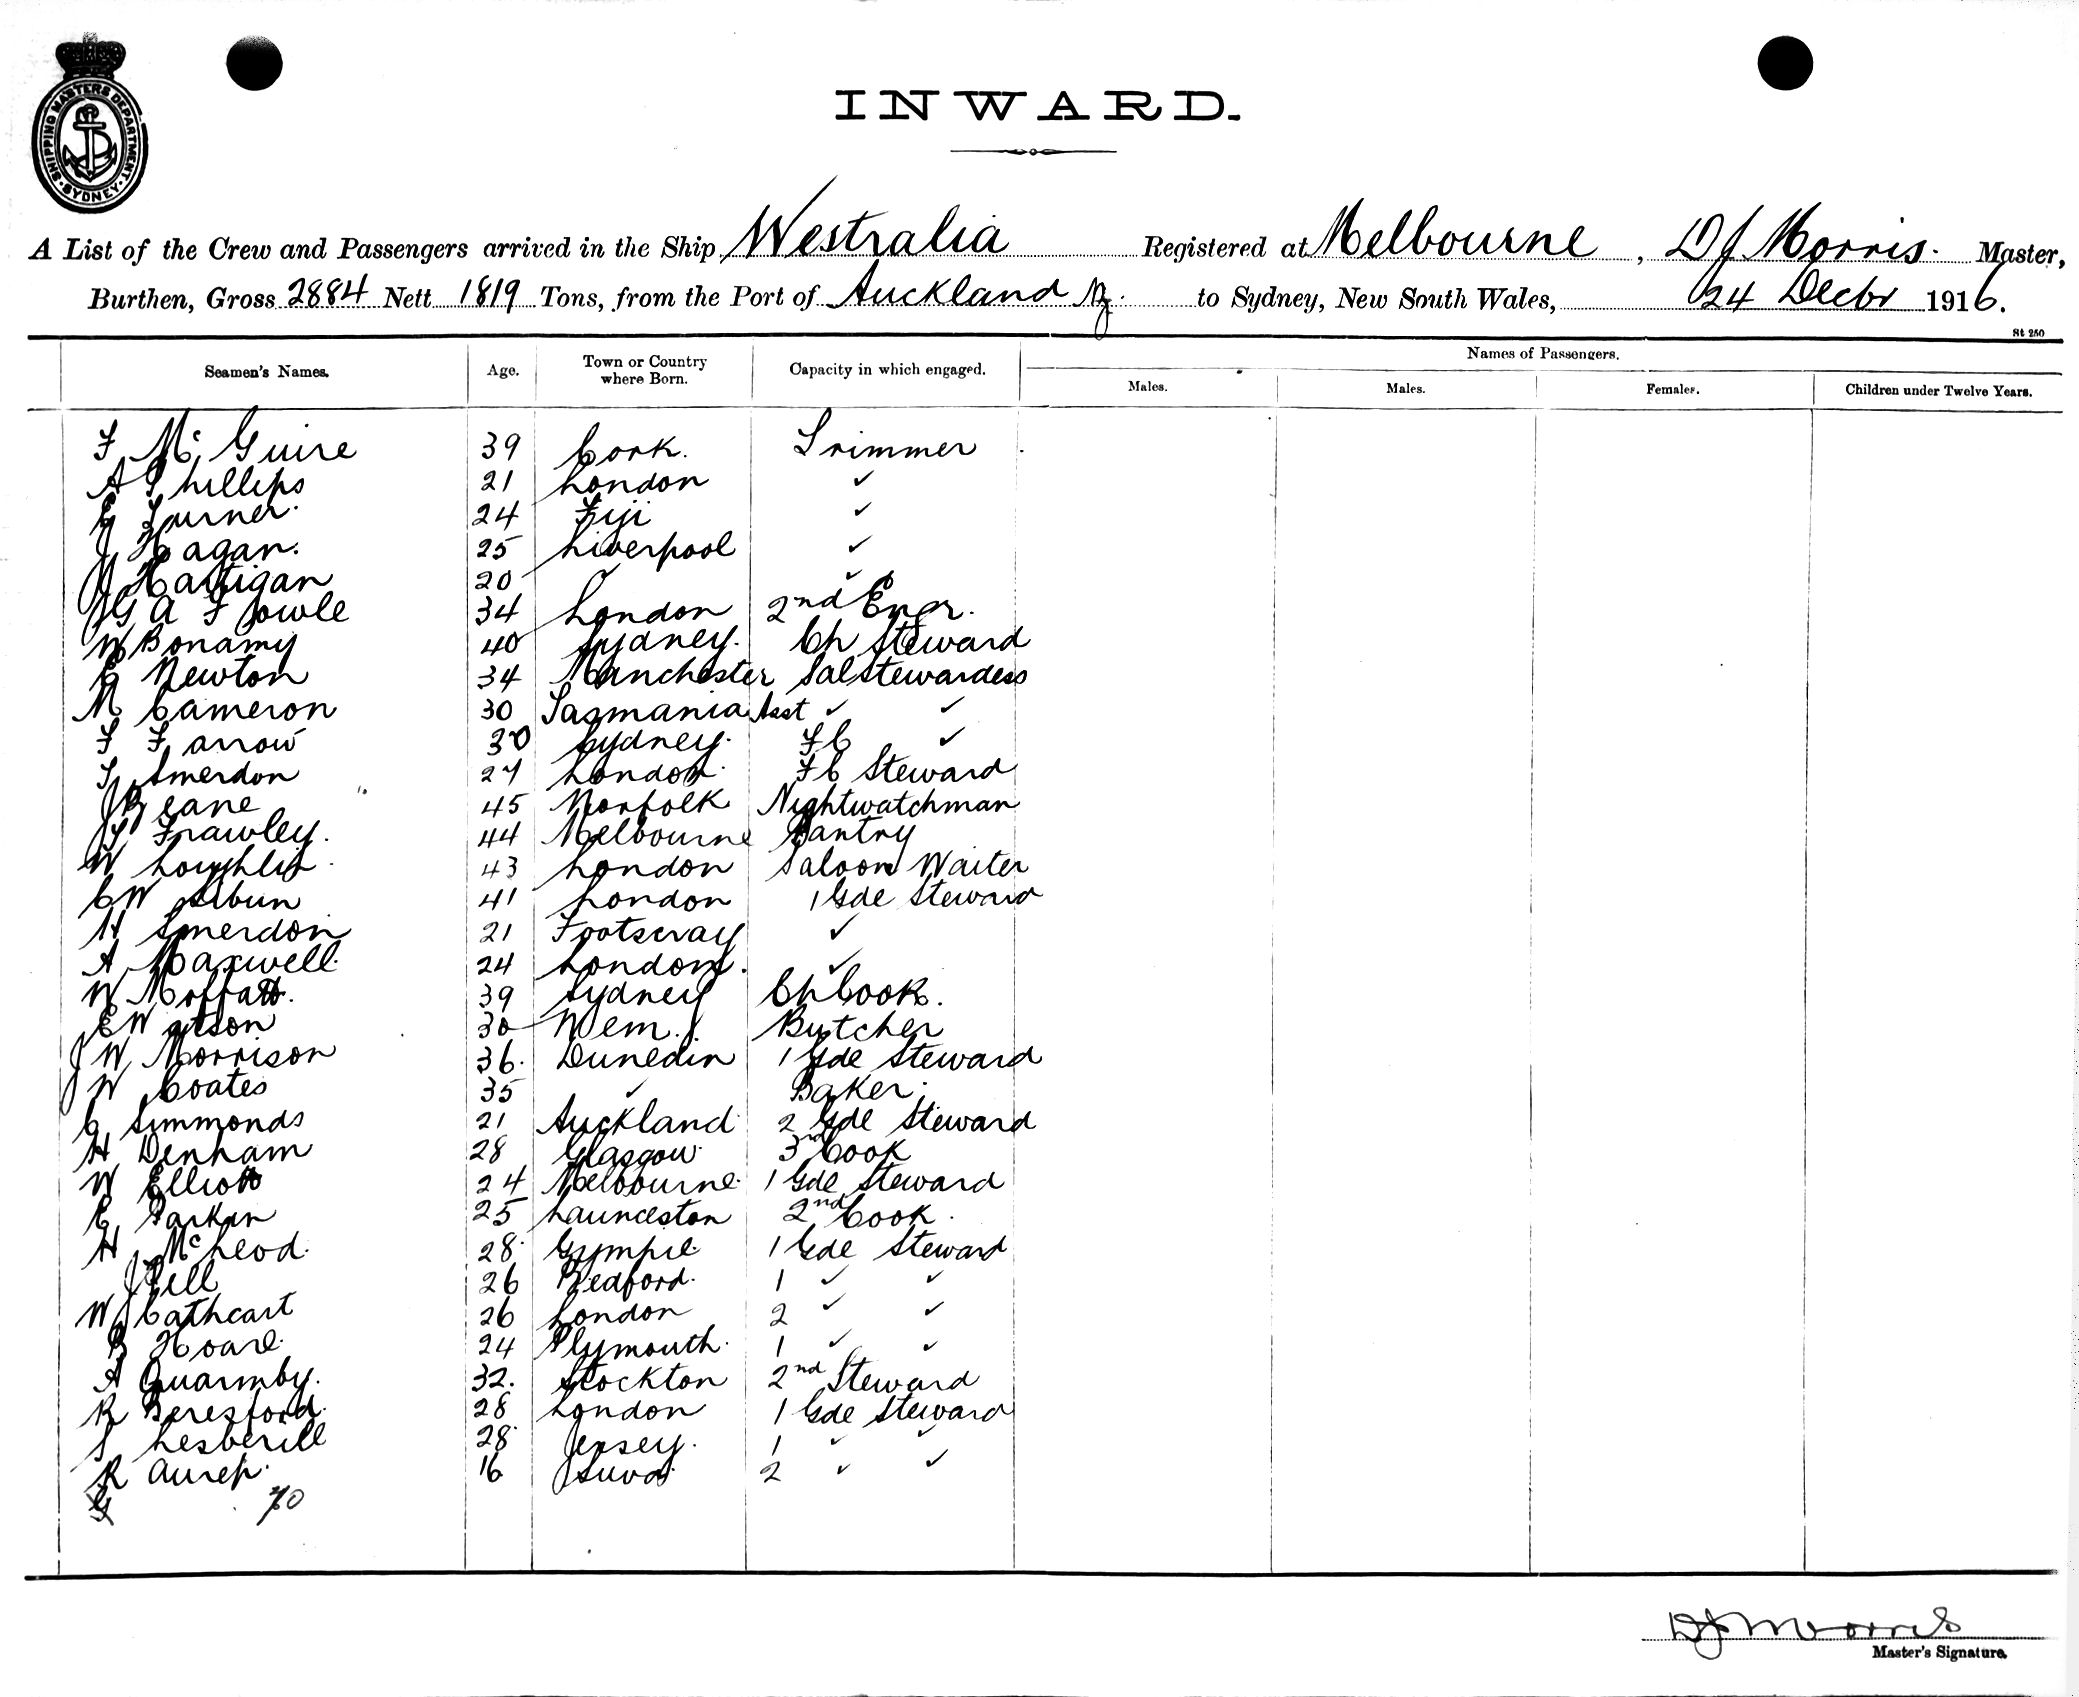 SHIPPING MASTERS DEPARTMENT. SYDNEY
INWARD.
A List of the Crew and Passengers arrived in the Ship Westralia Registered at Melbourne, D J Morris. Master,
Burthen, Gross 2884 Nett 1819 Tons, from the Port of Auckland NZ. to Sydney, New South Wales, 24 Decbr 1916.
St 250
Seamen's Names. Age. Town or Country where Born. Capacity in which engaged. Names of Passengers.
Males. Males. Females. Children under Twelve Years.
F McGuire 39 Cork. Trimmer
A Phillips 21 London ✓
G Turner. 24 Fiji ✓
J Hagan. 25 Liverpool ✓
J Hartigan 20 ✓ ✓
G A F Fowle 34 London 2nd Engr.
W Bonamy 40 Sydney. Ch Steward
E Newton 34 Manchester Sal Stewardess
M Cameron 30 Tasmania Asst ✓ ✓
F Farrow 30 Sydney. FC ✓
T Smerdon 27 London. FC Steward
J Beane 45 Norfolk Nightwatchman
J Frawley. 44 Melbourne Pantry
W Loughlin. 43 London Saloon Waiter
C W Sibun 41 London 1 Gde Steward
H Smerdon 21 Footscray ✓
A Maxwell. 24 London. ✓
W Moffatt. 39 Sydney Ch Cook.
E Watson 30 Wem. Butcher
J W Morrison 36. Dunedin 1 Gde Steward
J W Coates 35 ✓ Baker.
C Simmonds 21 Auckland 2 Gde Steward
H Denham 28 Glasgow. 3rd Cook
W Elliott 24 Melbourne. 1 Gde Steward
E Parker 25 Launceston 2nd Cook.
H McLeod. 28. Gympie. 1 Gde Steward
J Bell 26 Bedford. 1 ✓ ✓
W Cathcart 26 London 2 ✓ ✓
B Hoare. 24 Plymouth. 1 ✓ ✓
A Quarmby. 32. Stockton 2nd Steward
R Beresford. 28 London 1 Gde Steward
S Lesberill 28 Jersey. 1 ✓ ✓
R 16 Suva. 2 ✓ ✓
70
D J Morris
Master's Signature.